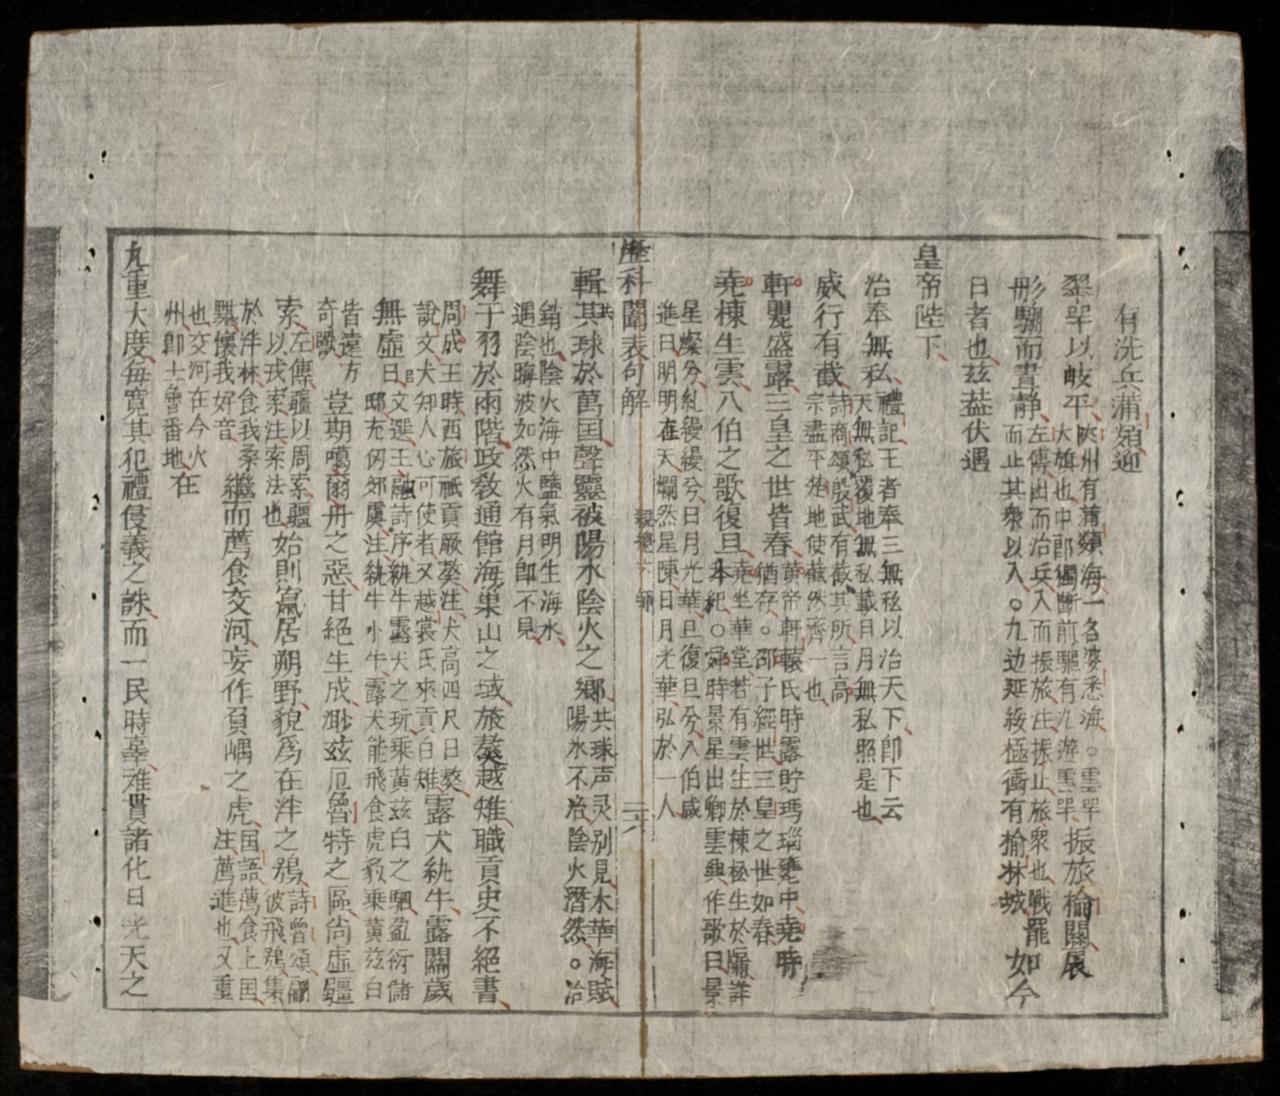 有洗兵蒲頪迎
翠罕以岐平大旂也中郎獨斷前驅有九遊雲罕振旅榆關展
陝州有蒲類海一名婆悉海。雲罕
彤驂而晝静左傳出而治兵入而振旅注振止旅衆也戰罷
而止其衆以入。九边延綏極衝有榆林城如今
日者也茲葢伏遇
皇帝陛下
治奉無私禮記王者奉三無私以治天下即下云
天無私覆地無私載日月無私照是也
威行有截詩商頌殷武有截其所言高
宗盡平楚地使截然齊一也
軒甖盛露三皇之世皆春黄帝軒轅氏時露貯瑪瑙甕中堯時
猶存。邵子經世三皇之世如春
堯棟生雲八伯之歌復旦堯坐華堂若有雲生於棟極生於牖詳
本紀。舜時景星出卿雲興作歌曰景
星燦兮糺縵縵兮日月光華旦復旦兮八伯咸
進曰明明在天爛然星陳日月光華弘於一人
歷科闈表句解
二八
輯其球於萬国聲靈被陽水陰火之鄉共球声灵別見木華海賦
陽氷不冶陰火潛然。冶
銷也陰火海中鹽氣明生海水
遇陰晦波如然火有月即不見
舞于羽於兩階政教通館海巢山之域旅獒越雉職貢史不絕書
周成王時西旅祇貢厥獒注犬高四尺曰獒
說文犬知人心可使者又越裳氏來貢白雉露犬紈牛露闢歲
無虛日文選王融詩序紈牛露犬之玩乘黄茲白之駟盈衍儲
邸充仞郊虞注紈牛小牛露犬能飛食虎豹乘黄茲白
皆遠方
奇獸豈期噶爾丹之惡甘絕生成渺茲厄魯特之區尚虛疆
索左傳疆以周索疆
以戎索注索法也始則窩居朔野貌為在泮之鴞詩魯頌翩
彼飛鴞集
於泮林食我桑
黮懷我好音繼而薦食交河妄作負嵎之虎国語薦食上国
注薦進也又重
也交河在今火
州即土魯番地在
九重大度每寛其犯禮侵義之誅而一民時辜难貫諸化日光天之